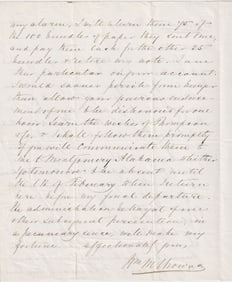 my alarm, I will return them 75 of
the 100 bundles of paper they sent me,
and pay them cash for the other 25
bundles & retire my note. I am
thus particular on your account.
I would sooner perish from hunger
than allow your generous
to be dishonored for one
hour. Learn the wishes of Thompson
& Co & I shall follow them promptly
if you will communicate them to
me at Montgomery Alabama whether
I am absent until
the of February when I return
here before my final departure.
The administration betrayal of me
& their subsequent persecution, in
a pecuniary sense will make my
fortune. affectionately yours,
Wm M Browne